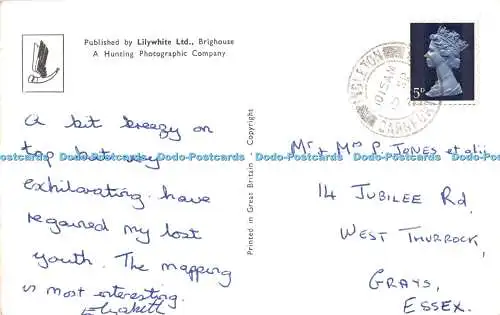 Published by Lilywhite Ltd., Brighouse
A Hunting Photographic Company
INGLETON
1015 AM
CARNFORTH
5D
A bit breezy on
top but very
exhilarating. have
regained my lost
youth. The mapping
is most interesting.
Elizabeth
Printed in Great Britain - Copyright
Mr + Mrs P. JONES et alii
14 JUBILEE Rd,
WEST THURROCK,
GRAYS,
ESSEX.
Dodo-Postcards Dodo-Postcards Dodo-Postcards Dodo-Postcards Dodo-Postcards Dodo-Postcards